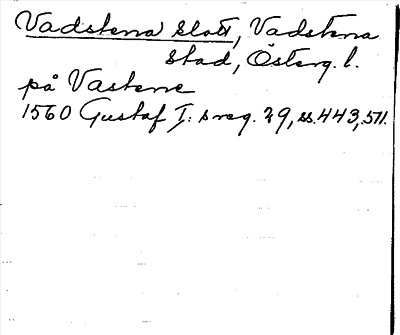 Vadstena slott, Vadstena
stad, Österg. l.
på Vastene
1560 Gustaf I: s reg. 29, ss. 443, 571.